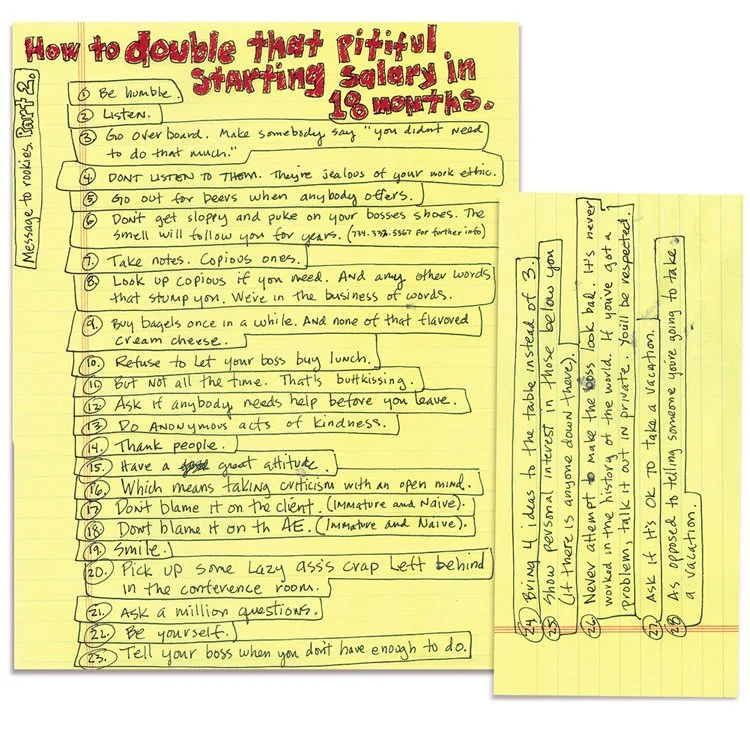 How to double that pitiful
starting salary in
18 months.
Message to rookies. Part 2.
1 Be humble.
2 Listen.
3 Go overboard. Make somebody say "you didn't need
to do that much."
4. DON'T LISTEN TO THEM. They're jealous of your work ethic.
5 Go out for beers when anybody offers.
6 Don't get sloppy and puke on your bosses shoes. The
smell will follow you for years. (734.332.5367 for further info)
7. Take notes. Copious ones.
8. Look up copious if you need. And any other words
that stump you. We're in the business of words.
9. Buy bagels once in a while. And none of that flavored
cream cheese.
10. Refuse to let your boss buy lunch.
11. But not all the time. That's buttkissing.
12 Ask if anybody needs help before you leave.
13 Do Anonymous acts of kindness.
14. Thank people.
15. Have a great attitude.
16. Which means taking criticism with an open mind.
17 Don't blame it on the client. (Immature and Naive).
18. Don't blame it on th AE. (Immature and Naive).
19. Smile.
20. Pick up some lazy ass's crap left behind
in the conference room.
21. Ask a million questions.
22. Be yourself.
23. Tell your boss when you don't have enough to do.
24 Bring 4 ideas to the table instead of 3.
25 Show personal interest in those below you
(If there is anyone down there).
26 Never attempt to make the boss look bad. It's never
worked in the history of the world. If you've got a
problem, talk it out in private. You'll be respected.
27 Ask if it's OK to take a vacation.
28 As opposed to telling someone you're going to take
a vacation.